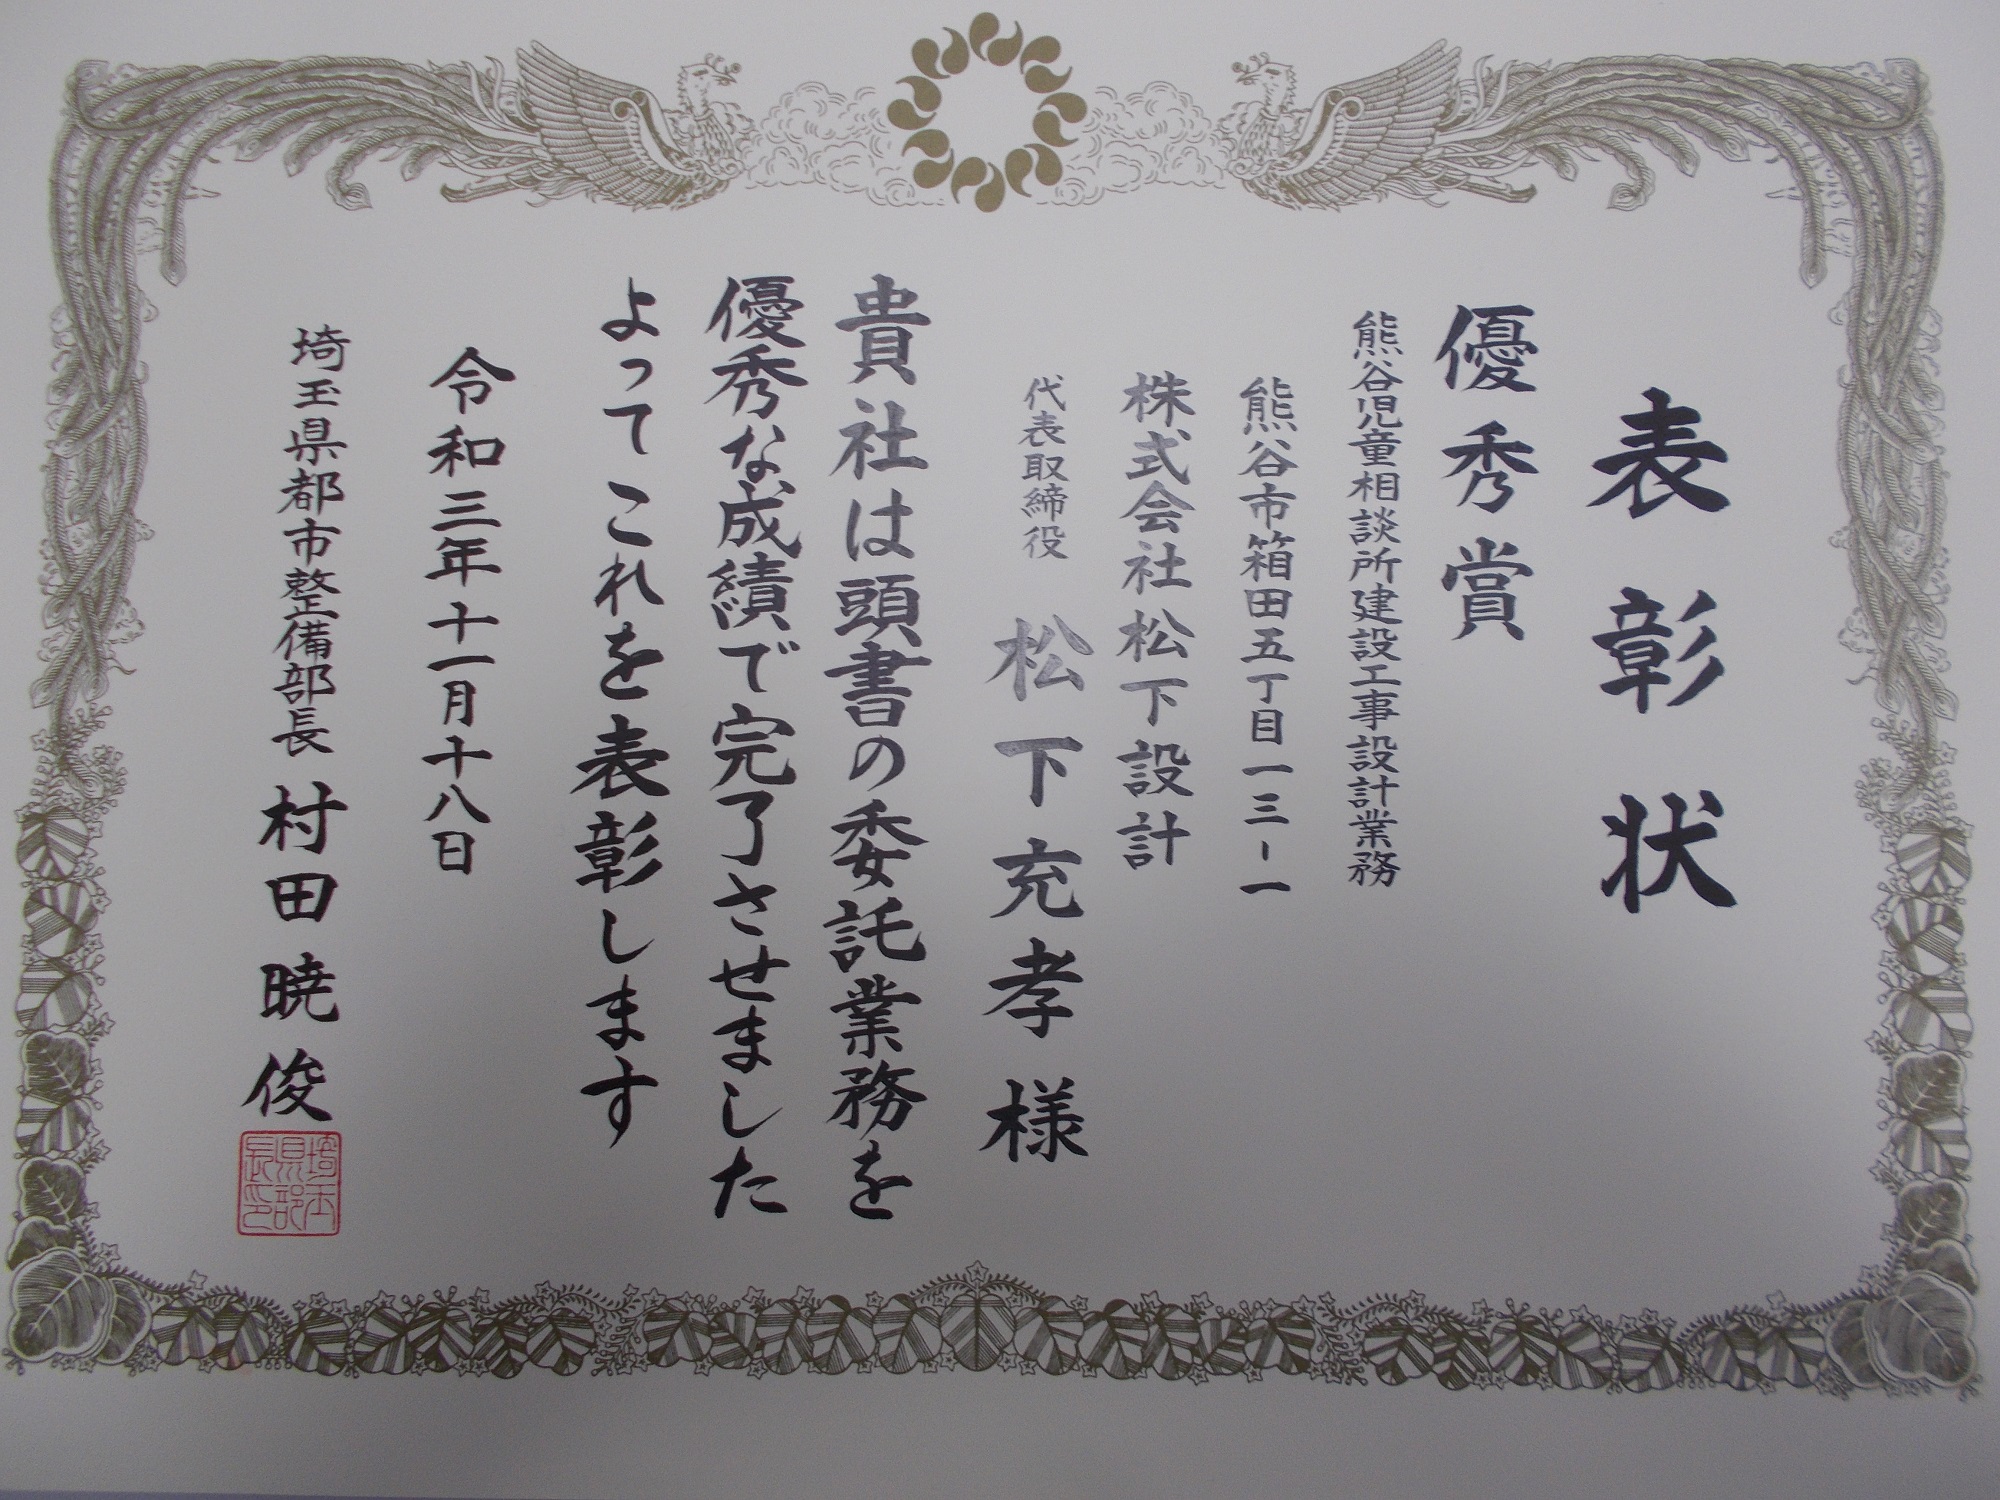 表彰状
優秀賞
熊谷児童相談所建設工事設計業務
熊谷市箱田五丁目一三-一
株式会社松下設計
代表取締役 松下充孝様
貴社は頭書の委託業務を
優秀な成績で完了させました
よってこれを表彰します
令和三年十一月十八日
埼玉県都市整備部長 村田暁俊
埼玉
県部
長印